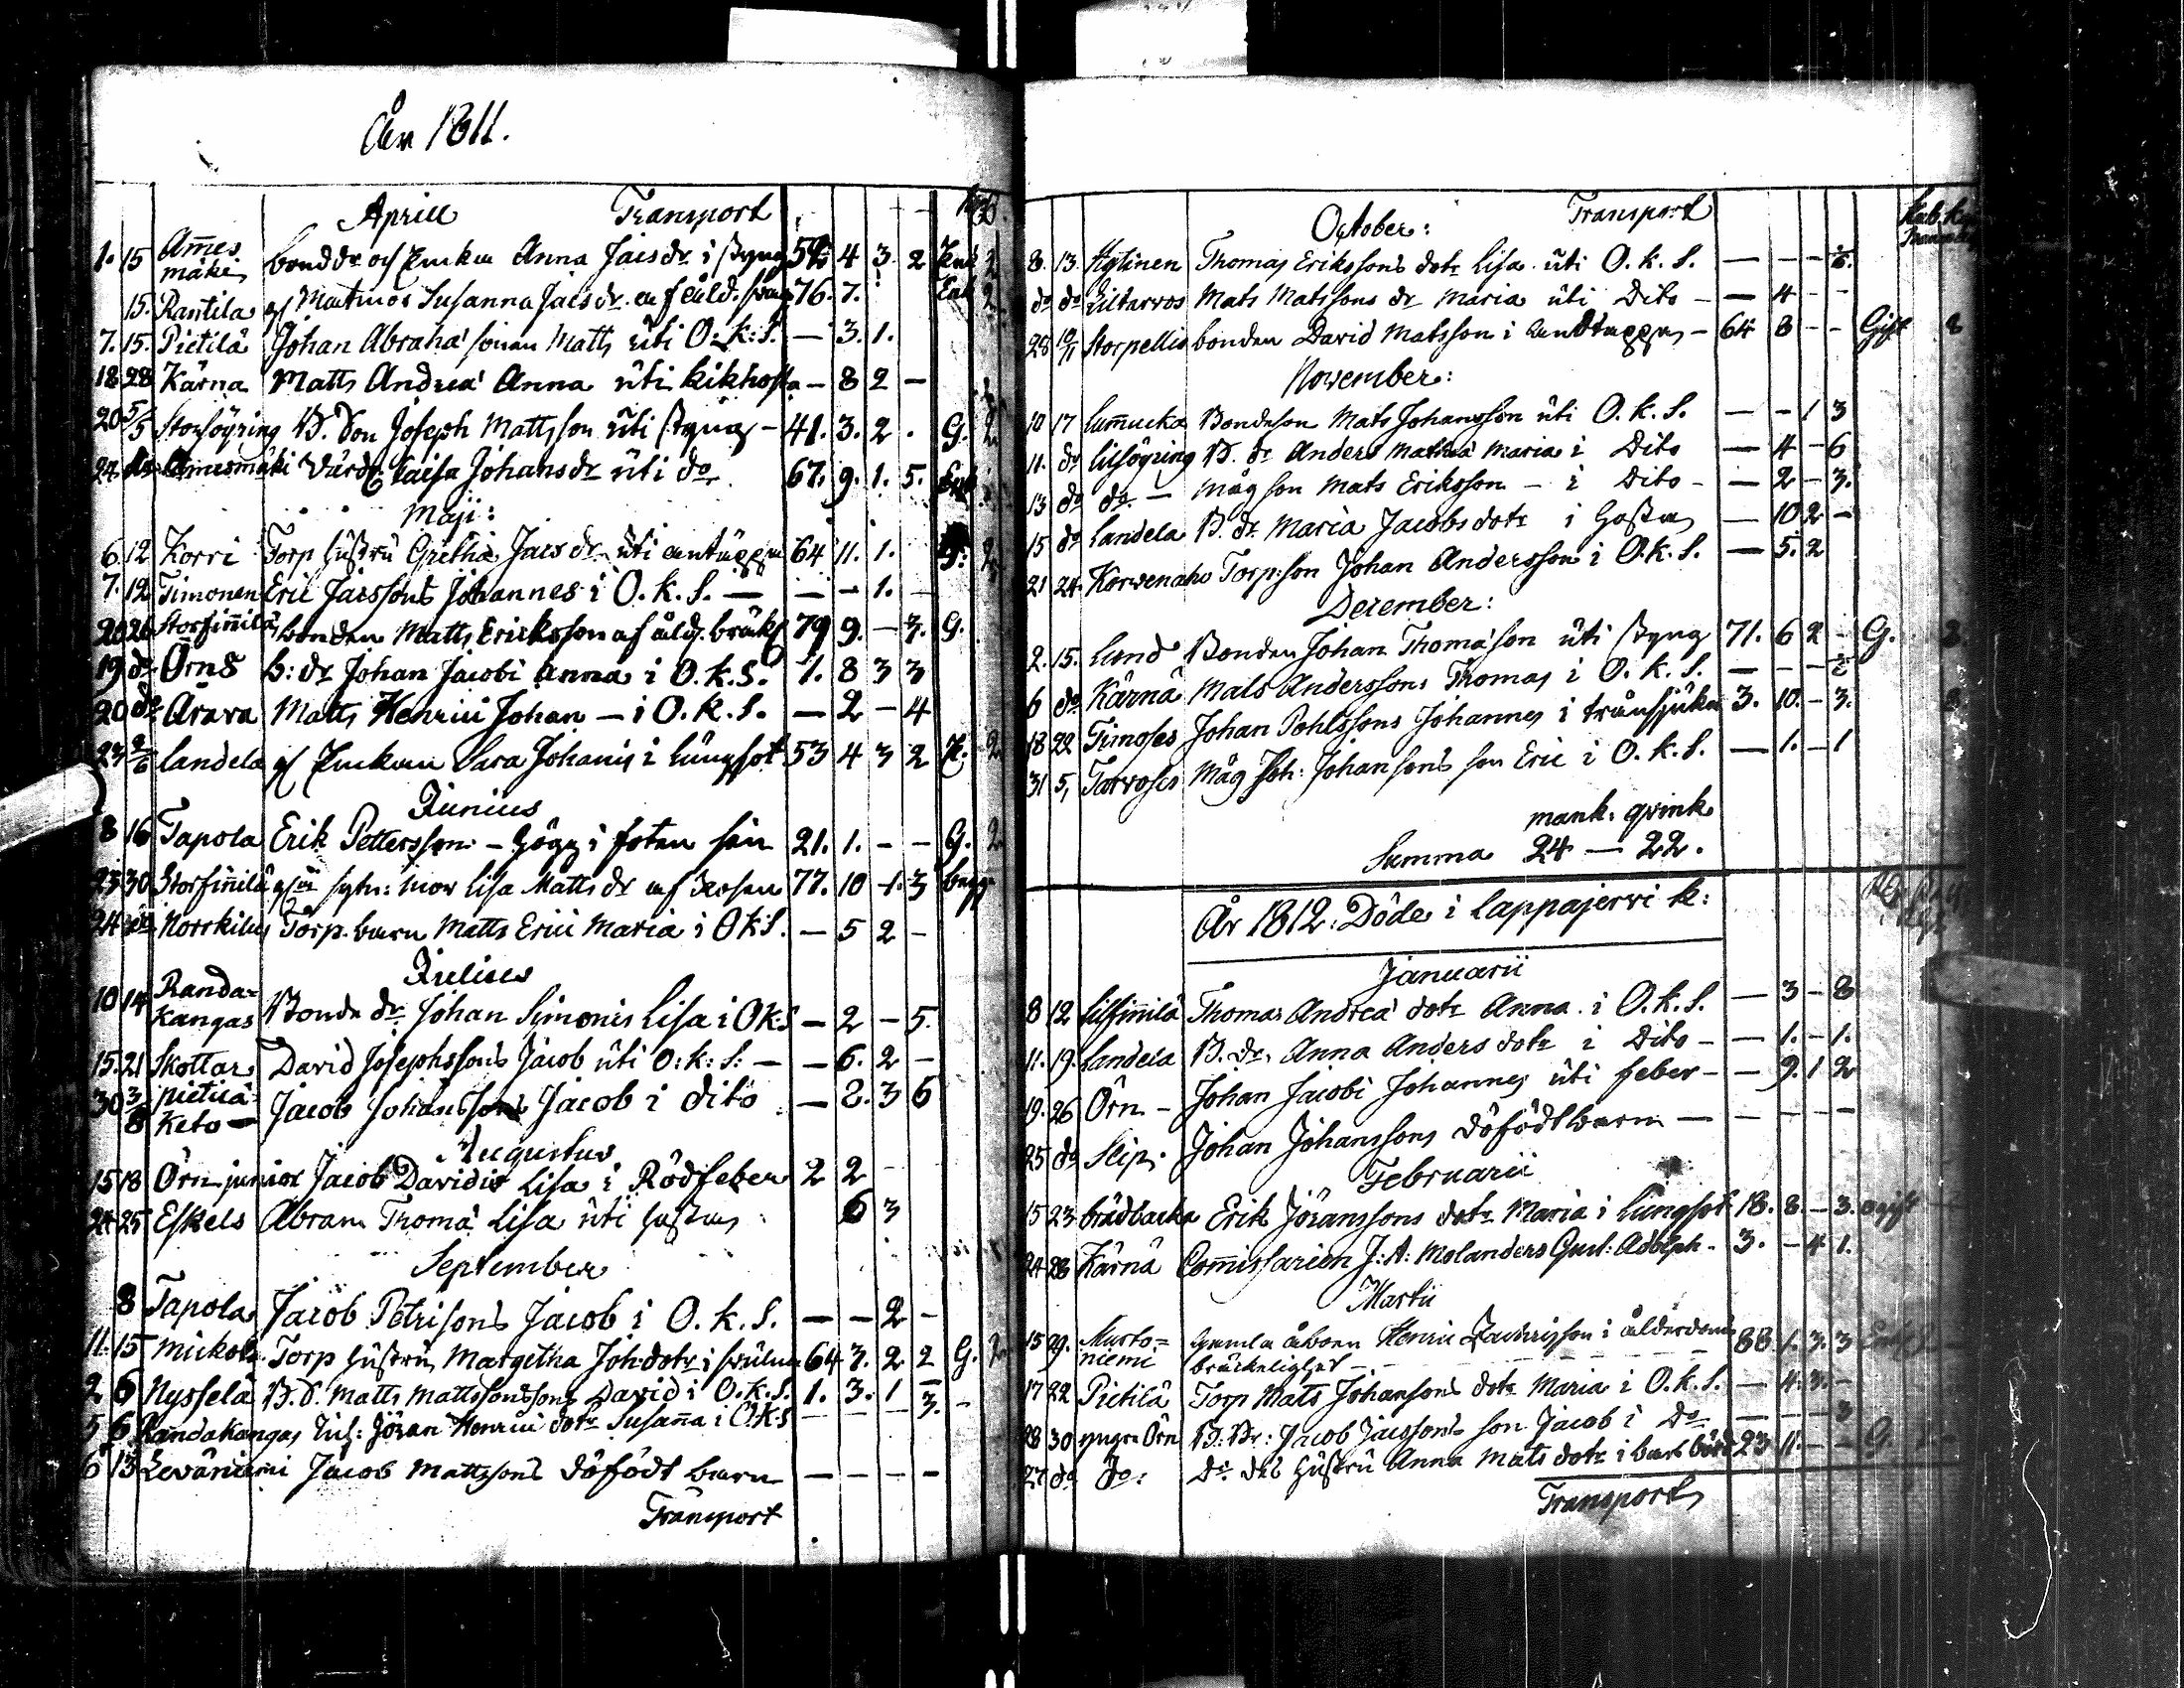 År 1811.
Aprill Transport
1. 15 Am̅es mäki bond dr och Enkan Anna Jacs dr i styng 54 4 3. 2 Enk 2
15. Rantila gl Matmor Susanna Jacs dr af åld. 76. 7. Enk 2
7. 15. Pietilä Johan Abraha' sonen Matts uti O: k: S. — 3. 1.
18 28 Kärnä Matts Andreæ' Anna uti kikhosta — 8 2 —
20 5/5 Storsöyring B. Son Joseph Mattsson uti styng — 41. 3. 2. G. 2
24. do Amesmäki Caisa Johans dr uti do 67. 9. 1. 5. Enk
Maji:
6 12 Korri Torp hustru Gretha Jacs dr uti andtäppa 64 11. 1. G. 2
7. 12 Timonen Eric Jacssons Johannes i O. k. S. — — — 1. —
20 26 Storfinnilä bonden Matts Ericksson af åld. bräkl 79 9. — 3. G.
19 do Örns b: dr Johan Jacobi Anna i O. k. S. 1. 8 3 3
20 do Arava Matts Henrici Johan — i O. k. S. — 2 — 4
23 2/6 Landela gl Enkan Sara Johanis i lungsot 53 4 3 2 E. 2
Junius
8 16 Tapola Erik Pettersson — högg i foten sin 21. 1. — — G. 2
23 30 Storfinnilä Lisa Matts dr af Rosen 77. 10 1. 3
24 do Norrkilus Torp. barn Matts Erici Maria i OkS. — 5 2 —
Julius
10 14 Randa= kangas Bonde dr Johan Simonis Lisa i OkS — 2 — 5.
15. 21 Skottar David Josephssons Jacob uti O: k: S: — — 6. 2 —
30 3/8 Pietilä= keto — Jacob Johanssons Jacob i dito — 2. 3 6
Augustus
15 18 Örn junior Jacob Davidis Lisa i Rödfeber 2 2 —
24 25 Eskels Abram Thomæ' Lisa uti hastas 6 3
September
8 Tapola Jacob Petrisons Jacob i O. k. S. — — 2 —
11. 15 Mickols Torp hustru Margetha Joh dotr i 64 3. 2 2 G. 2
2 6 Nysselä B. S. Matts Mattssons son David i O. k. S. 1. 3. 1 —
5 6 Randakangas Inh: Jöran Henrici dotr Susan̅a i OkS — — — 3. —
6 13 Leväniemi Jacob Mattssons dödfödt barn — — — —
Transport
October: Transport
8. 13. Hytinen Thomas Erikssons dotr Lisa uti O. k. S. — — — ½.
do do Liltarvos Mats Matssons dr Maria uti Dito — — 4 — —
28 10/11 Storpellis bonden David Matsson i andtäppa — 64 8 — — Gift 8
November:
10 17 Lam̅ucka Bondeson Mats Johansson uti O. k. S. — — 1 3
11. do Lilsöyring B. dr Anders Mathiæ' Maria i Dito — 4 — 6
13 do do — Måg son Mats Eriksson — i Dito — — 2 — 3.
15 do Landela B. dr Maria Jacobs dotr i Hosta — 10 2 —
21 24. Korwenaho Torp: son Johan Andersson i O. k. S. — 5. 2
December:
2. 15. Lund Bonden Johan Thomæ'son uti styng 71. 6 2 — G. 2
6 do Kärnä Mats Anderssons Thomas i O. k. S. — — — ½
18 22 Timoses Johan Pohlssons Johannes i trånsjuka 3. 10. — 3. 2
31 5/1 Tarvoses Måg Joh: Johansons son Eric i O. k. S. — 1. — 1
mank. qvink
Summa 24 — 22.
År 1812: Döde i Lappajerwi k:
Januarii
8 12 Lilfinnilä Thomas Andreæ' dotr Anna i O. k. S. — 3 — 8
11. 19. Landela B. dr Anna Anders dotr i Dito — — 1. — 1.
19. 26 Örn — Johan Jacobi Johannes uti feber — — 9. 1 2
25 do Seip. Johan Johanssons dödfödt barn — — — — —
Februarii
15 23 Brädbacka Erik Jöranssons dotr Maria i lungsot 18. 8. — 3. ogift
24 28 Kärnä Com̅issarien J: A: Molanders Gust: Adolph. 3. — 4 1.
Martii
15 29. Kurto= niemi Gamla åboen Henric Zachrisson i ålderdoms 88 1. 3. 3
bräckelighet —
17 22 Pietilä Torp Mats Johansons dotr Maria i O. k. S. — 4. 3. —
28 30 yngre Örn B: Br: Jacob Jacssons son Jacob i Do — — — 3
27 do do: Do dess hustru Anna Mats dotr i barnsbörd 23 11. — — G.
Transport